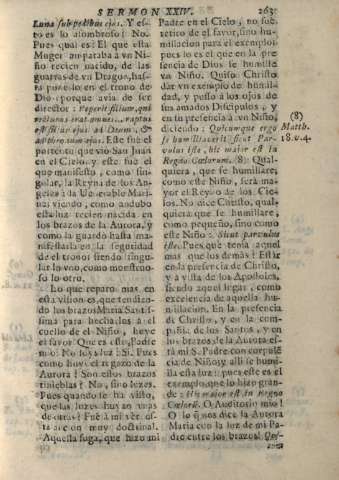 SERMON XXIV. 263
Luna sub pedibus ejus. Y es-
to es lo assombroso? No.
Pues qual es? El que esta
Muger amparaba a vn Ni-
ño recien nacido, de las
garras de vn Drago, hasta
ponerlo en el trono de
Dios porque avia de ser
director: Peperit filium, qui
recturus erat omnes... raptus
est filius ejus ad Deum, &
ad thronum ejus. Este fue el
portento que viò San Juan
en el Cielo, y este fue el
que manifestò, como sin-
gular, la Reyna de los An-
geles a la Venerable Mari-
na viendo, como anduvo
esta luz recien nacida en
los brazos de la Aurora, y
como la guardò hasta ma-
nifestarla en la seguridad
de el trono: siendo singu-
lar lo vno, como monstruo-
so lo otro.
Lo que reparo mas en
esta vision es, que tendien-
do los brazos Maria Santis-
sima para hecharlos a el
cuello de el Niño, huye
el favor. Que es este, Padre
mio? No soys luz? Si. Pues
como huys el regazo de la
Aurora? Son essos brazos
tinieblas? No, sino luzes.
Pues quando se ha visto,
que las luzes huyan vnas
de otras? Fue à mi ver es-
ta accion muy doctrinal.
Aquella fuga, que hizo mi
Padre en el Cielo, no fue
retiro de el favor, sino hu-
millacion para el exemplo:
pues lo es el que en la pre-
sencia de Dios se humille
vn Niño. Quiso Christo
dar vn exemplo de humil-
dad, y puso à los ojos de
sus amados Discipulos, y
en su presencia à vn Niño,
diciendo: Quicumque ergo
se humiliaverit sicut Par-
vulus iste, hic maior est in
Regno Cœlorum. (8) Qual-
quiera, que se humillare,
como este Niño, serà ma-
yor el Reyno de los Cie-
los. No dice Christo, qual-
quiera que se humillare,
como pequeño, sino como
este Niño: Sicut parvulus
iste. Pues que tenia aquel
mas que los demas? Estàr
en la presencia de Christo,
y à vista de los Apostoles,
siendo aquel lugar, como
excelencia de aquella hu-
millacion. En la presencia
de Christo, y en la com-
pañia de los Santos, y en
los brazos de la Aurora es-
tà mi S. Padre con corpulē-
cia de Niño; y alli se humi-
lla esta luz: pues este es el
exemplo, que lo hizo gran-
de: Hic maior est in Regno
Cœlorū. O Auditorio mio!
O lo q̃ nos dice la Aurora
Maria con la luz de mi Pa-
dre entre los brazos!
(8)
Matth.
18. v. 4.